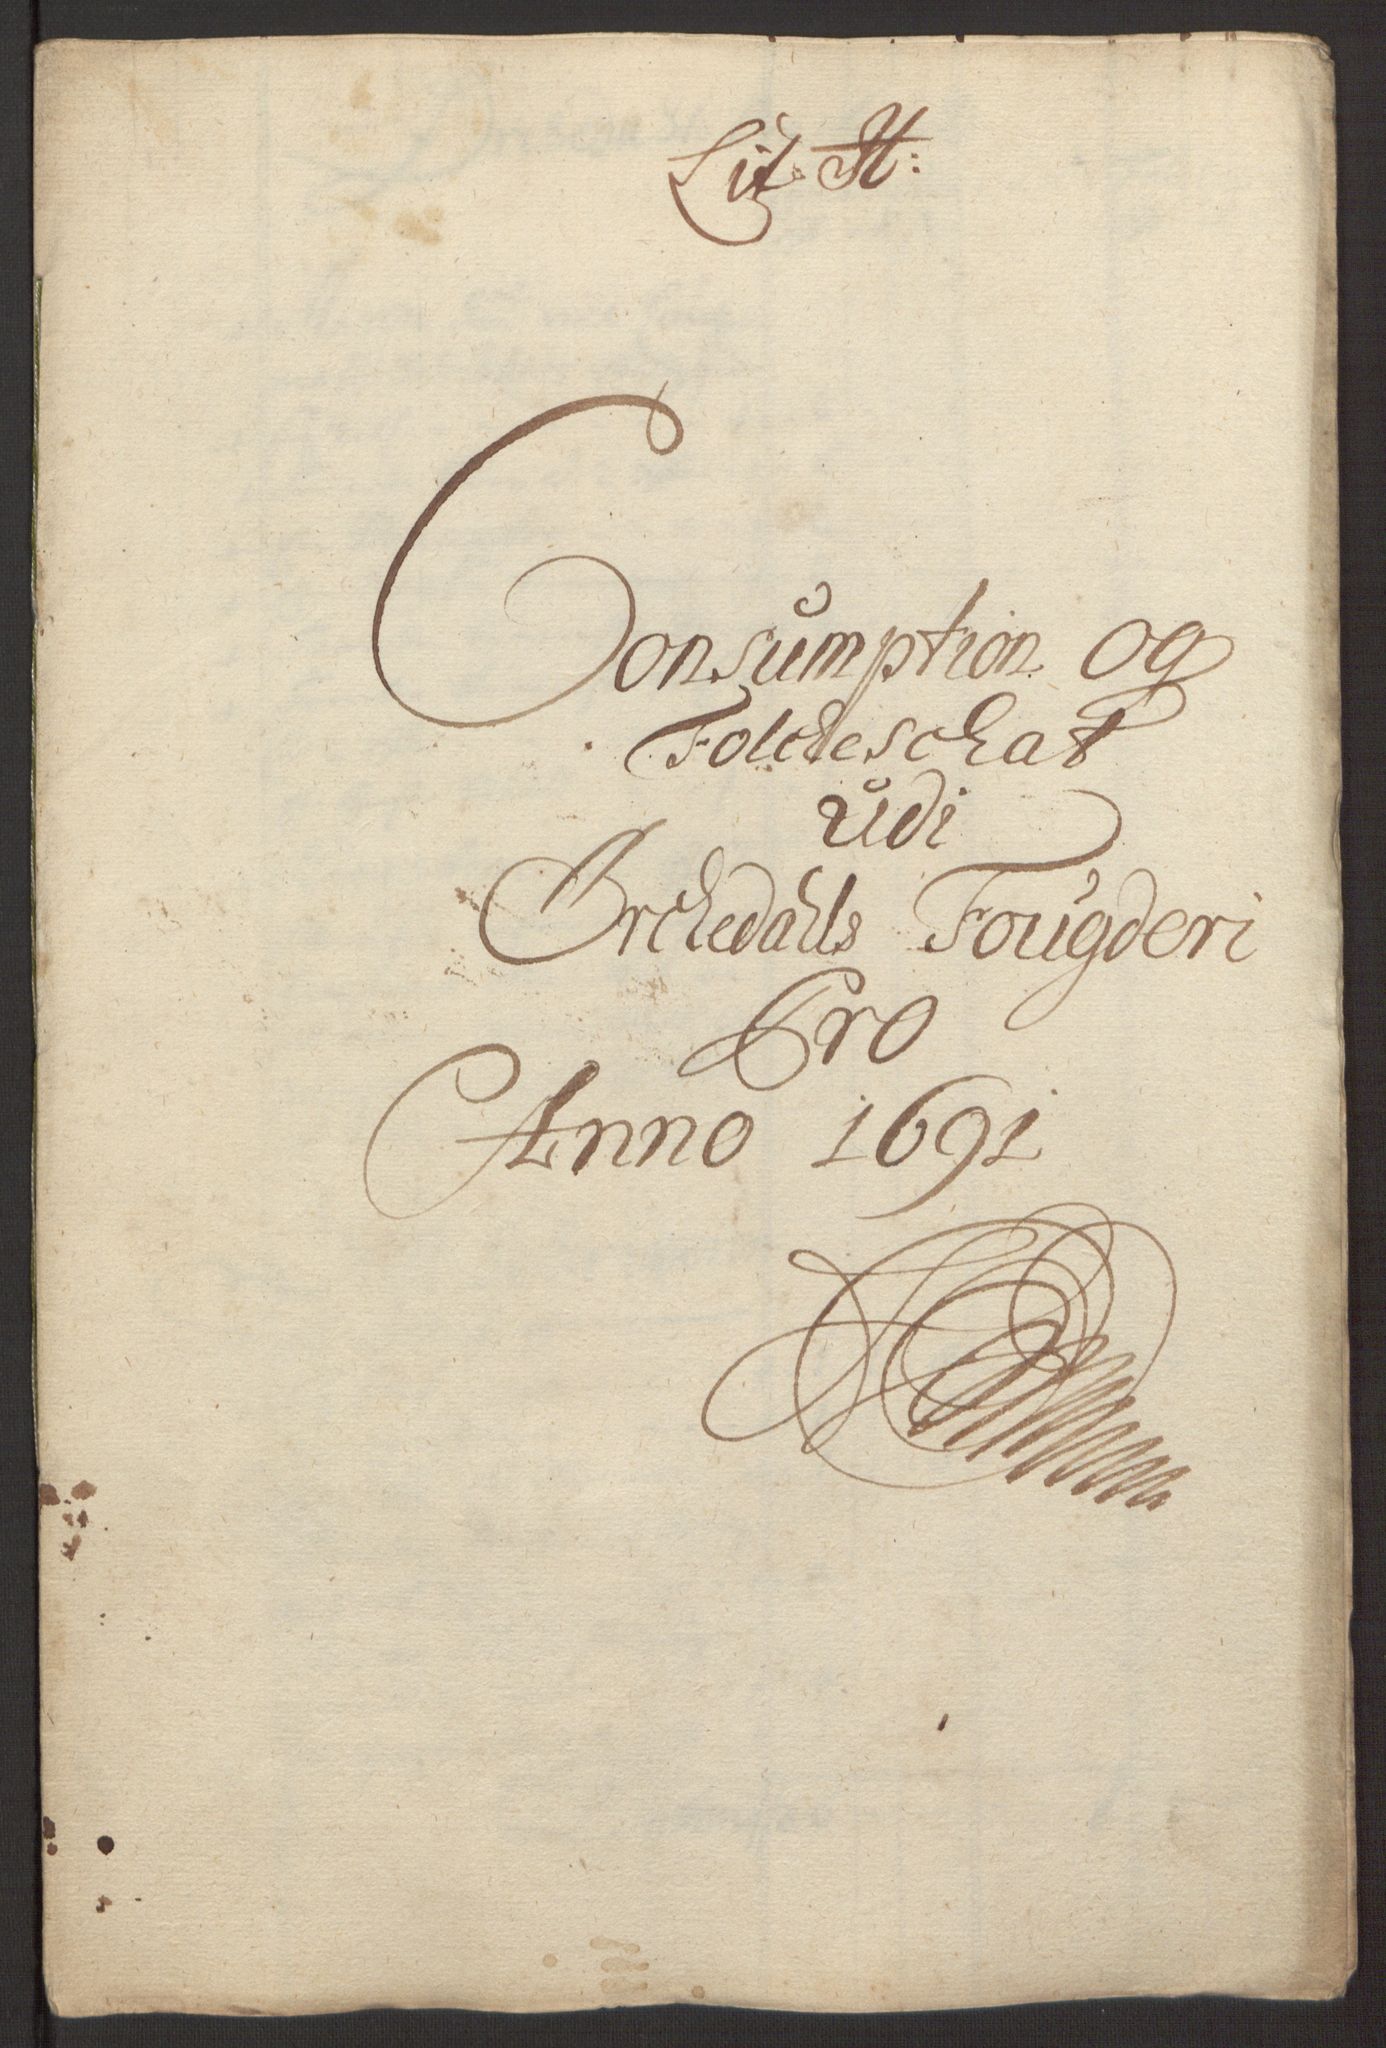 Lit. H:
Consumption og
Folcheschat
udi
Orchedahls Fougderi
Pro
Anno 1691